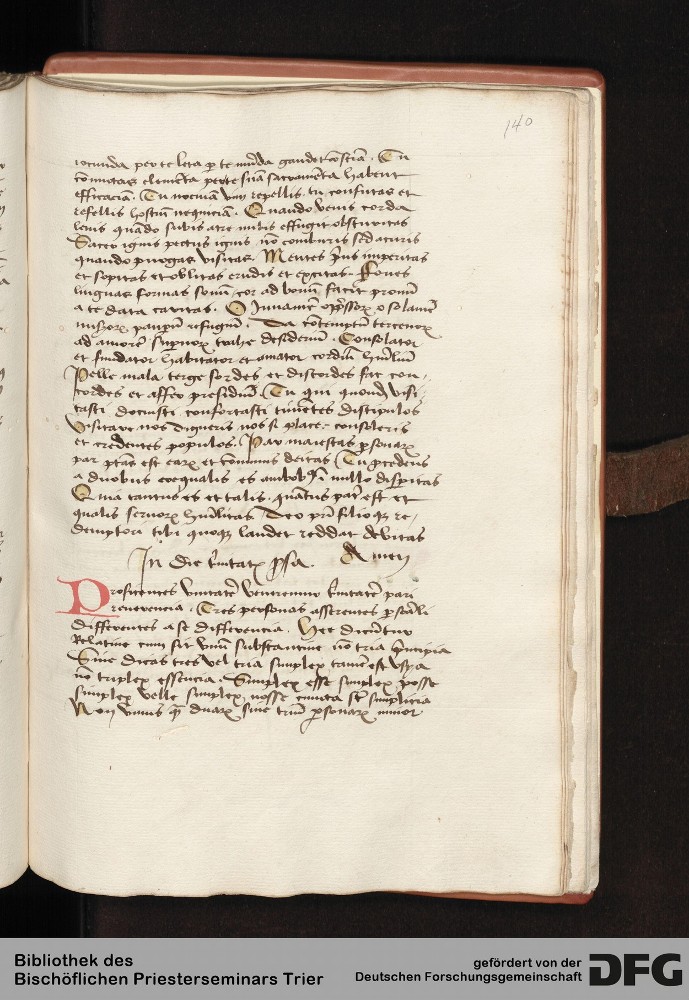 140
iocunda per te leta p te mu̅da gaudet co̅scia̅. Tu
co̅mutas eleme̅ta per te sua̅ sacrame̅ta habent
efficacia̅. Tu nociua̅ vim repellis tu confutas et
refellis hostiu̅ nequicia̅. Quando venis corda
lenis qua̅do subis atre nubis effugit obscuritas
Sacer ignis pectus ignis no̅ comburis sed a curis
quando purgas visitas. Mentes p̅us imperitas
et sopitas et oblitas erudis et excitas. Foues
linguas formas sonu̅ cor ad bonu̅ facit pronu̅
a te data caritas. O Iuuame̅ opp̅ssoꝝ o solame̅
miseroꝝ paup̅u̅ refugiu̅. Da co̅temptu̅ terrenoꝝ
ad amore̅ sup̅noꝝ trahe desideriu̅. Consolator
et fundator habitator et amator cordiu̅ hu̅iliu̅
Pelle mala terge sordes et discordes fac con-
cordes et affer presidiu̅. Tu qui quonda̅ visi-
tasti docuisti confortasti time̅tes discipulos
Visitare nos digneris nos si placet consoleris
et credentes populos. Par maiestas p̅sonaꝝ
par p̅tas est eaꝝ et co̅munis deitas Tu p̅cedens
a duobus coequalis es ambob̅ i̅ nullo disparitas
Quia tantus es et talis qua̅tus pat̅ est et
qualis seruoꝝ hu̅ilitas Deo p̅ri filioqꝫ re-
demptori tibi quoqꝫ laudes reddat debitas
In die t̅nitatꝭ p̅sa. Amen
Profitentes vnitate̅ veneremur t̅nitate̅ pari
reuerencia. Tres personas asserentes p̅so̅ali
differentes a se differencia. Hec dicu̅tur
Relatiue cum sit vnu̅ substantiue no̅ tria p̅ncipia
Siue dicas tres vel tria simplex tame̅ est vsya
no̅ triplex essencia. Simplex esse simplex posse
simplex velle simplex nosse cuncta su̅t simplicia
Non vnius q̅ duaꝝ siue triu̅ p̅sonaꝝ minor
Bibliothek des
Bischöflichen Priesterseminars Trier
gefördert von der
Deutschen Forschungsgemeinschaft
DFG